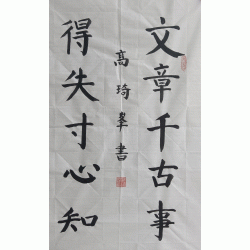 文章千古事
得失寸心知
高琦翠書